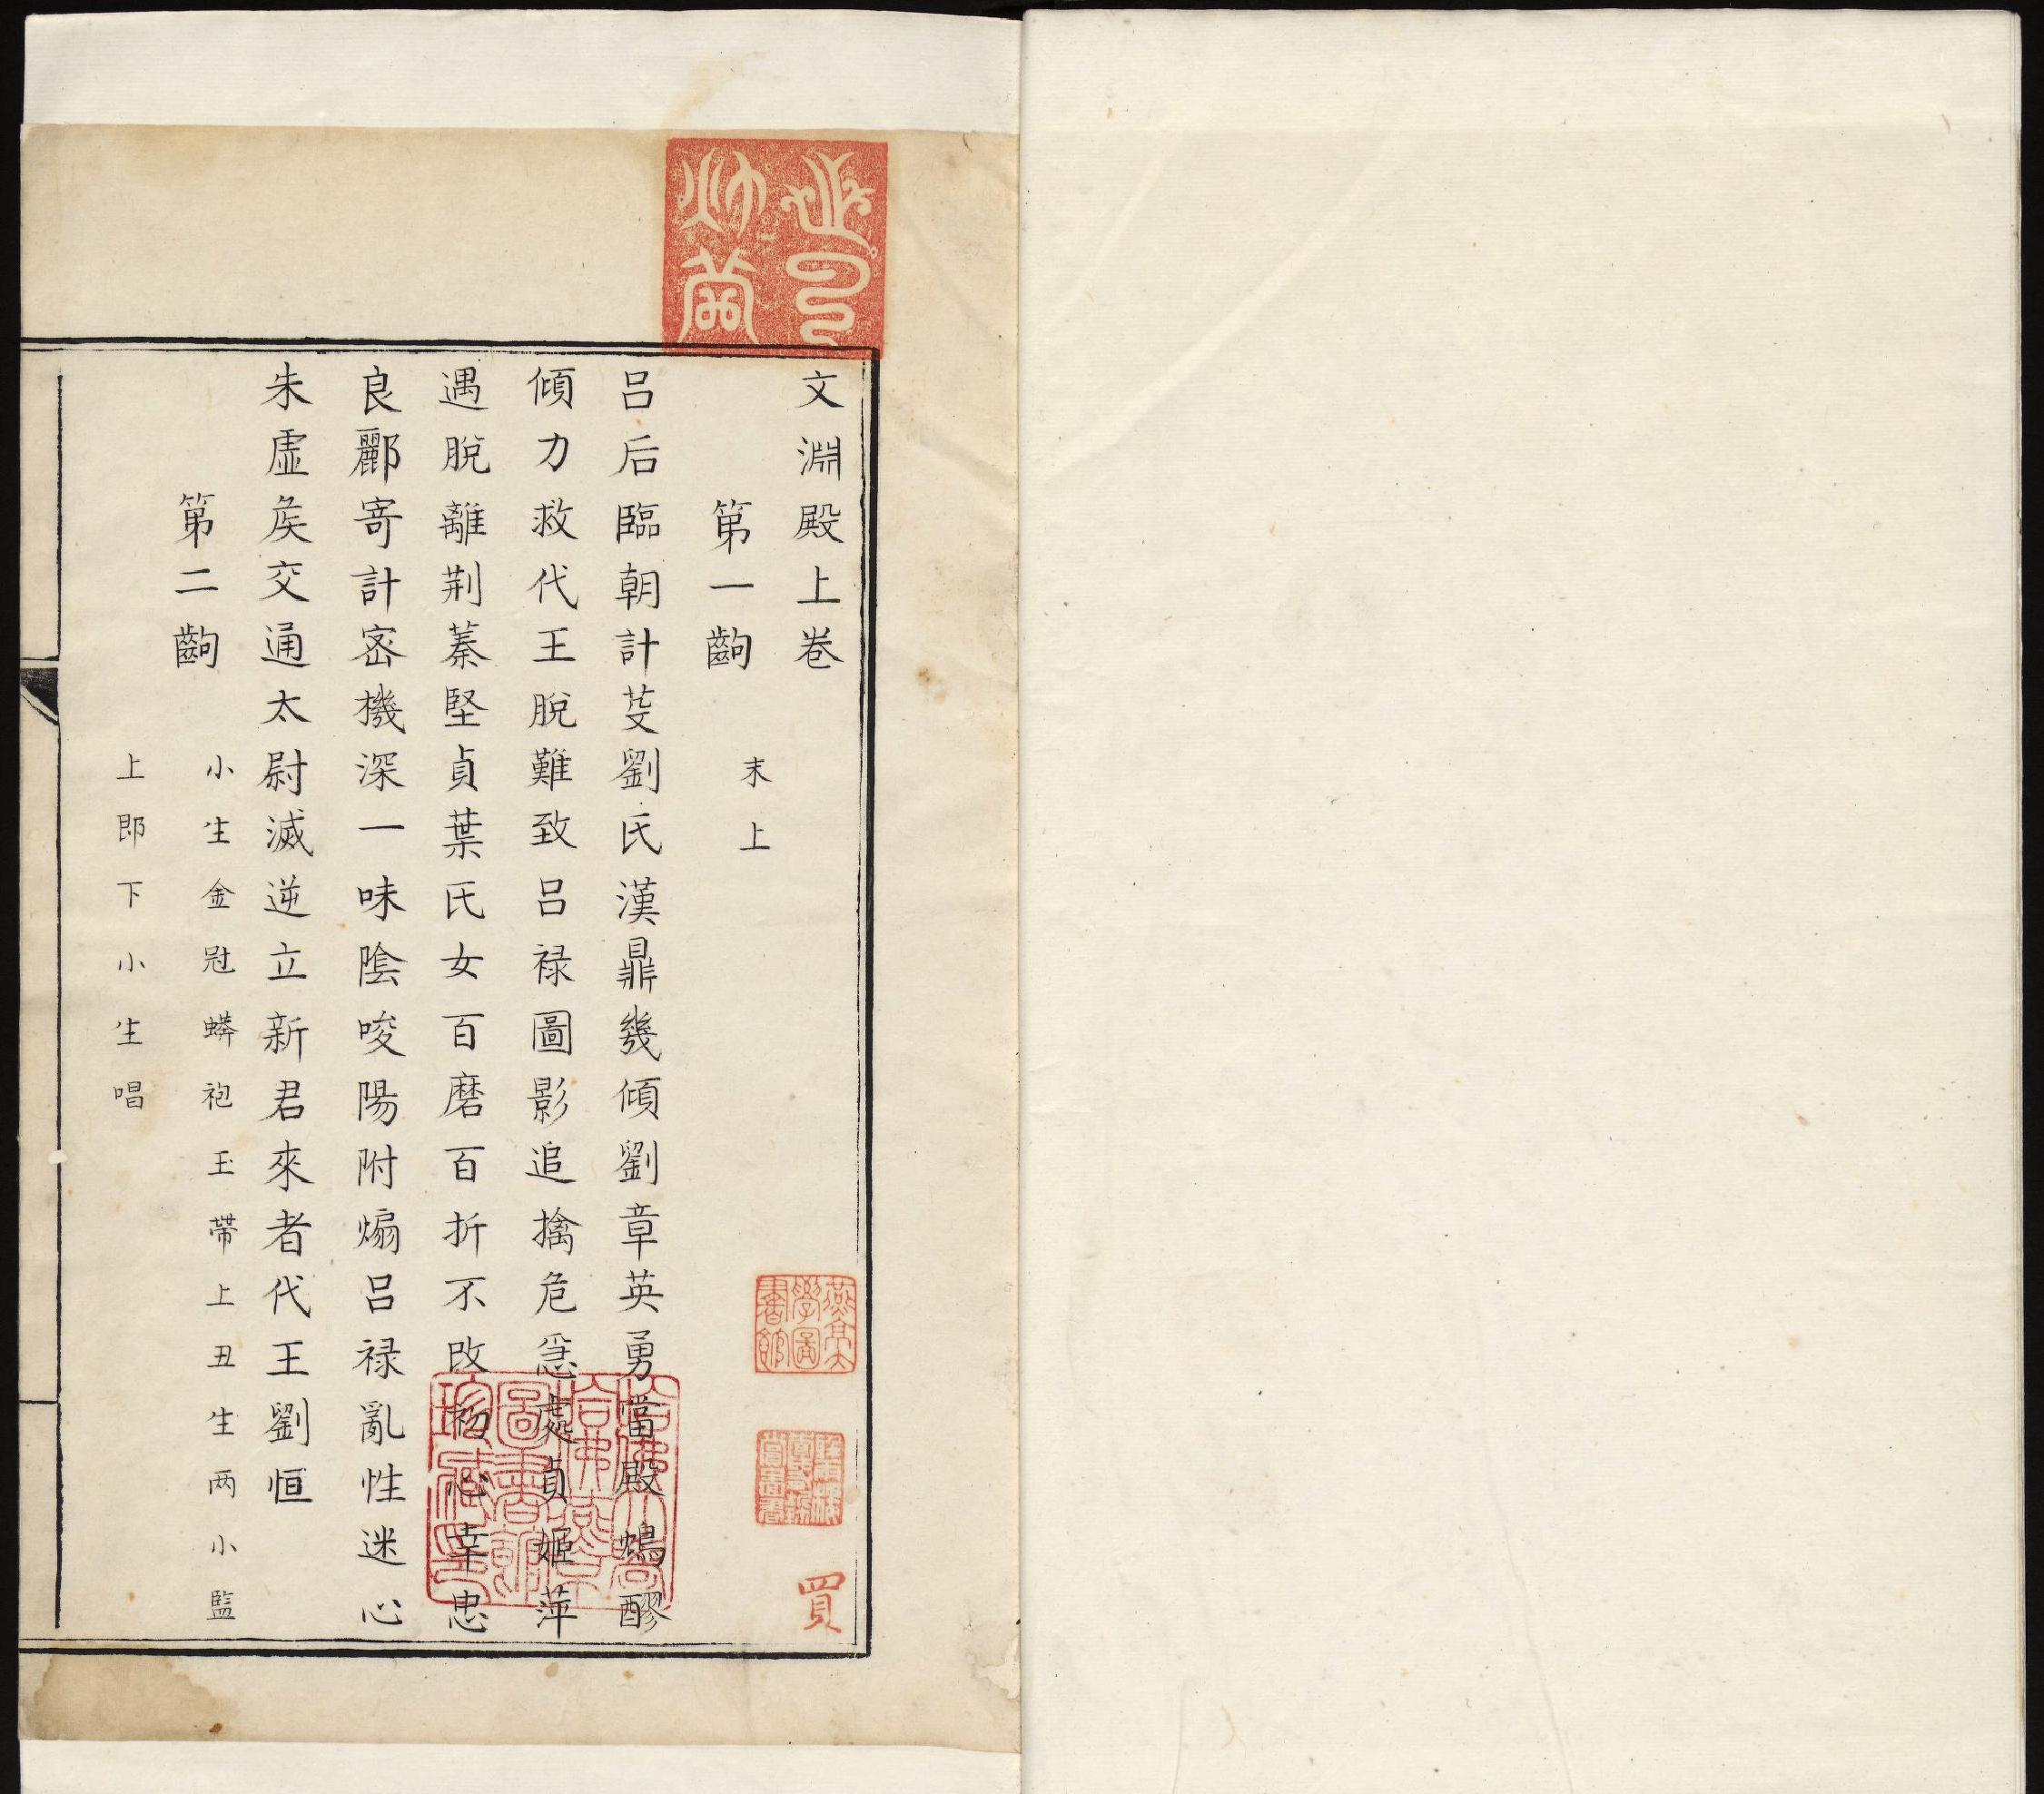 文淵殿上卷
第一齣
末上
呂后臨朝計芟劉氏漢鼎幾傾劉章英勇當殿鴆醪
傾力救代王脫難致呂禄圖影追擒危急處貞姬萍
遇脫離荆蓁堅貞葉氏女百磨百折不改初心幸忠
良酈寄計宻機深一味陰唆陽附煽呂禄亂性迷心
朱虛矦交通太尉滅逆立新君來者代王劉恒
第二齣
小生金冠蟒袍玉帶上丑生两小監
上即下小生唱
燕京大學圖書館
哈佛大學哈佛燕京圖書館珍藏印
買